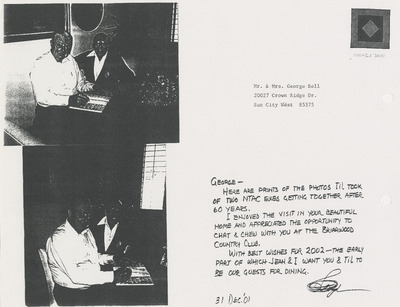 Mr. & Mrs. George Bell
20027 Crown Ridge Dr.
Sun City West 85375
GEORGE—
HERE ARE PRINTS OF THE PHOTOS TIL TOOK
OF TWO NTAC EXES GETTING TOGETHER AFTER
60 YEARS.
I ENJOYED THE VISIT IN YOUR BEAUTIFUL
HOME AND APPRECIATED THE OPPORTUNITY TO
CHAT & CHEW WITH YOU AT THE BRIARWOOD
COUNTRY CLUB.
WITH BEST WISHES FOR 2002—THE EARLY
PART OF WHICH JEAN & I WANT YOU & TIL TO
BE OUR GUESTS FOR DINING.
31 DEC.'01